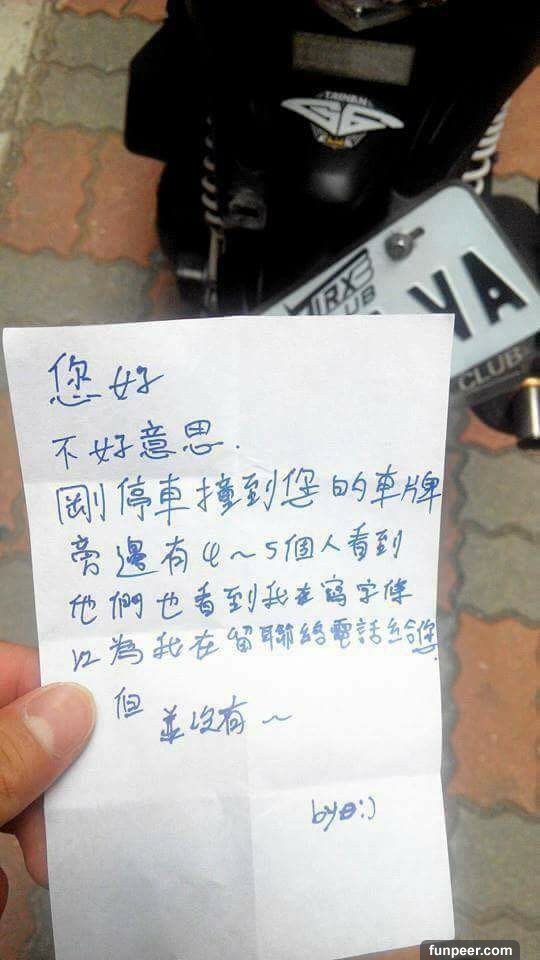 TAINAN
G6
RX
CLUB
VA
CLUB
您好
不好意思.
剛停車撞到您的車牌
旁邊有4~5個人看到
他們也看到我在寫字條
以為我在留聯絡電話給您.
但
並沒有~
by
:)
funpeer.com